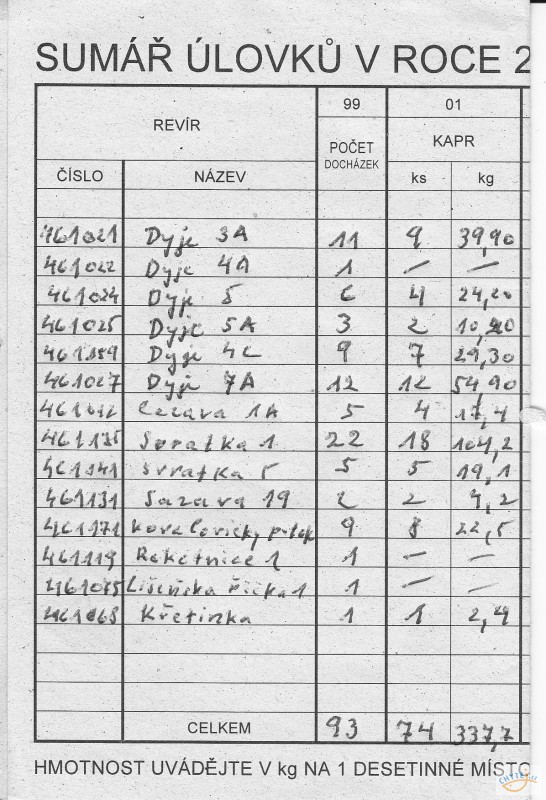 SUMÁŘ ÚLOVKŮ V ROCE 2
REVÍR 99 01
POČET DOCHÁZEK KAPR
ČÍSLO NÁZEV ks kg
461021 Dyje 3A 11 9 39,90
461022 Dyje 4A 1 – –
461024 Dyje 5 6 4 24,20
461025 Dyje 5A 3 2
461159 Dyje 4C 9 7 29,30
461027 Dyje 7A 12 12 54,90
1A 5 4 17,4
461135 Svratka 1 22 18 104,2
461141 Svratka 5 5 19,1
461131 Sazava 19 2 2
461171 Kovalovicky potok 9 8 22,5
461119 1 – –
Lišeňska řička 1 1 – –
461068 Křetinka 1 1 2,4
CELKEM 93 74 337,7
HMOTNOST UVÁDĚJTE V kg NA 1 DESETINNÉ MÍSTO